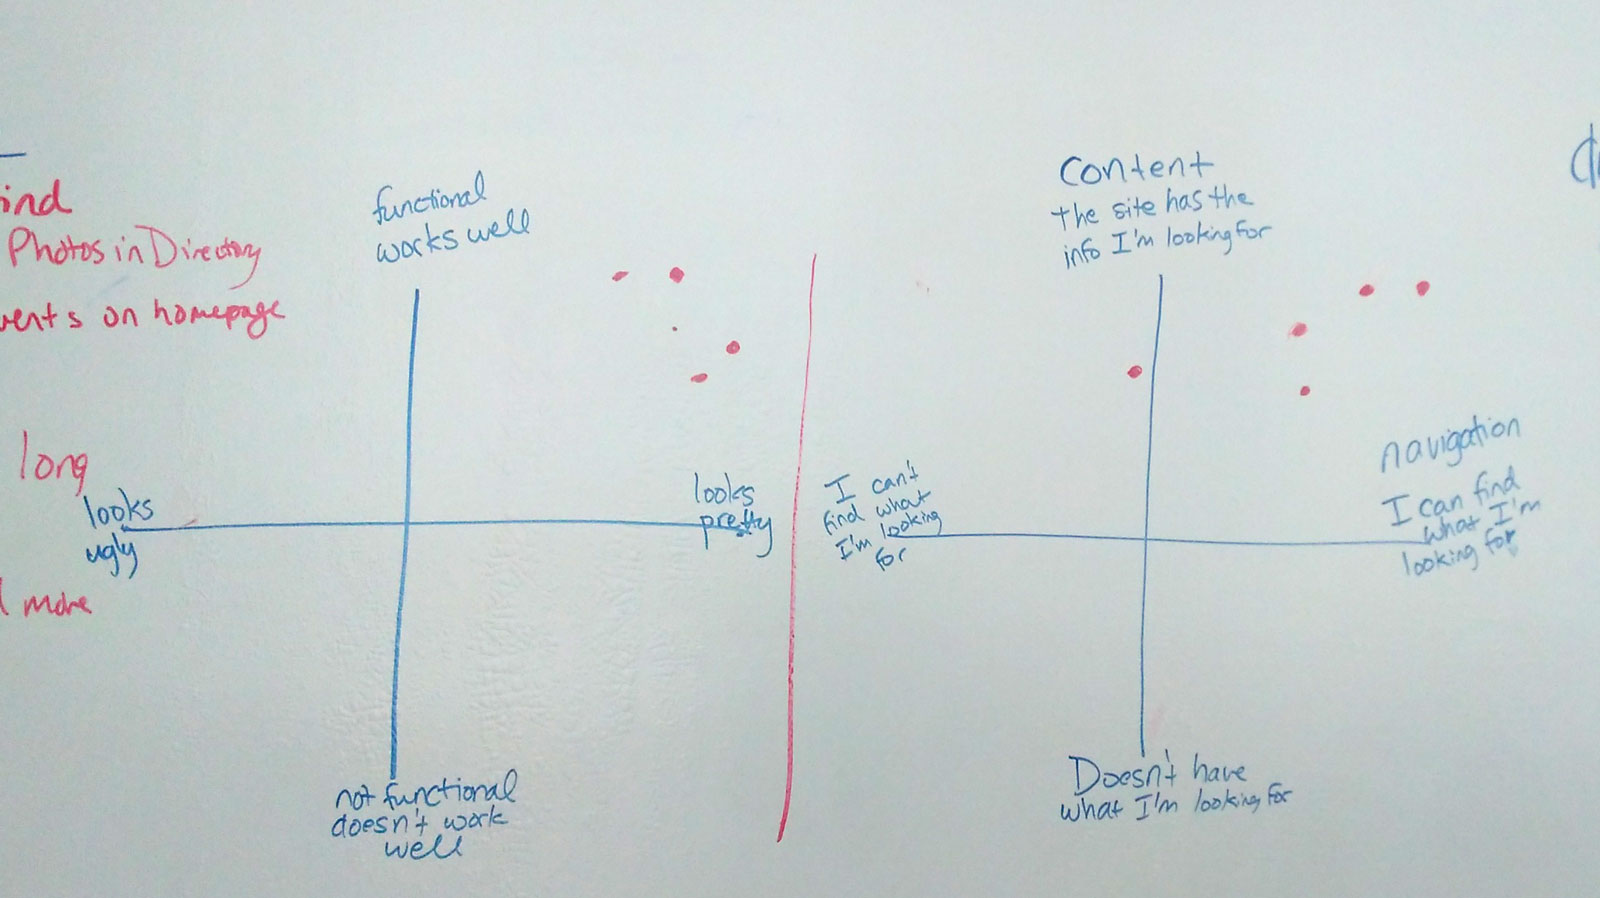 Photos in Directory
on homepage
long
more
functional
works well
looks
ugly
looks
pretty
not functional
doesn't work
well
content
the site has the
info I'm looking for
I can't
find what
I'm looking
for
navigation
I can find
what I'm
looking for
Doesn't have
what I'm looking for